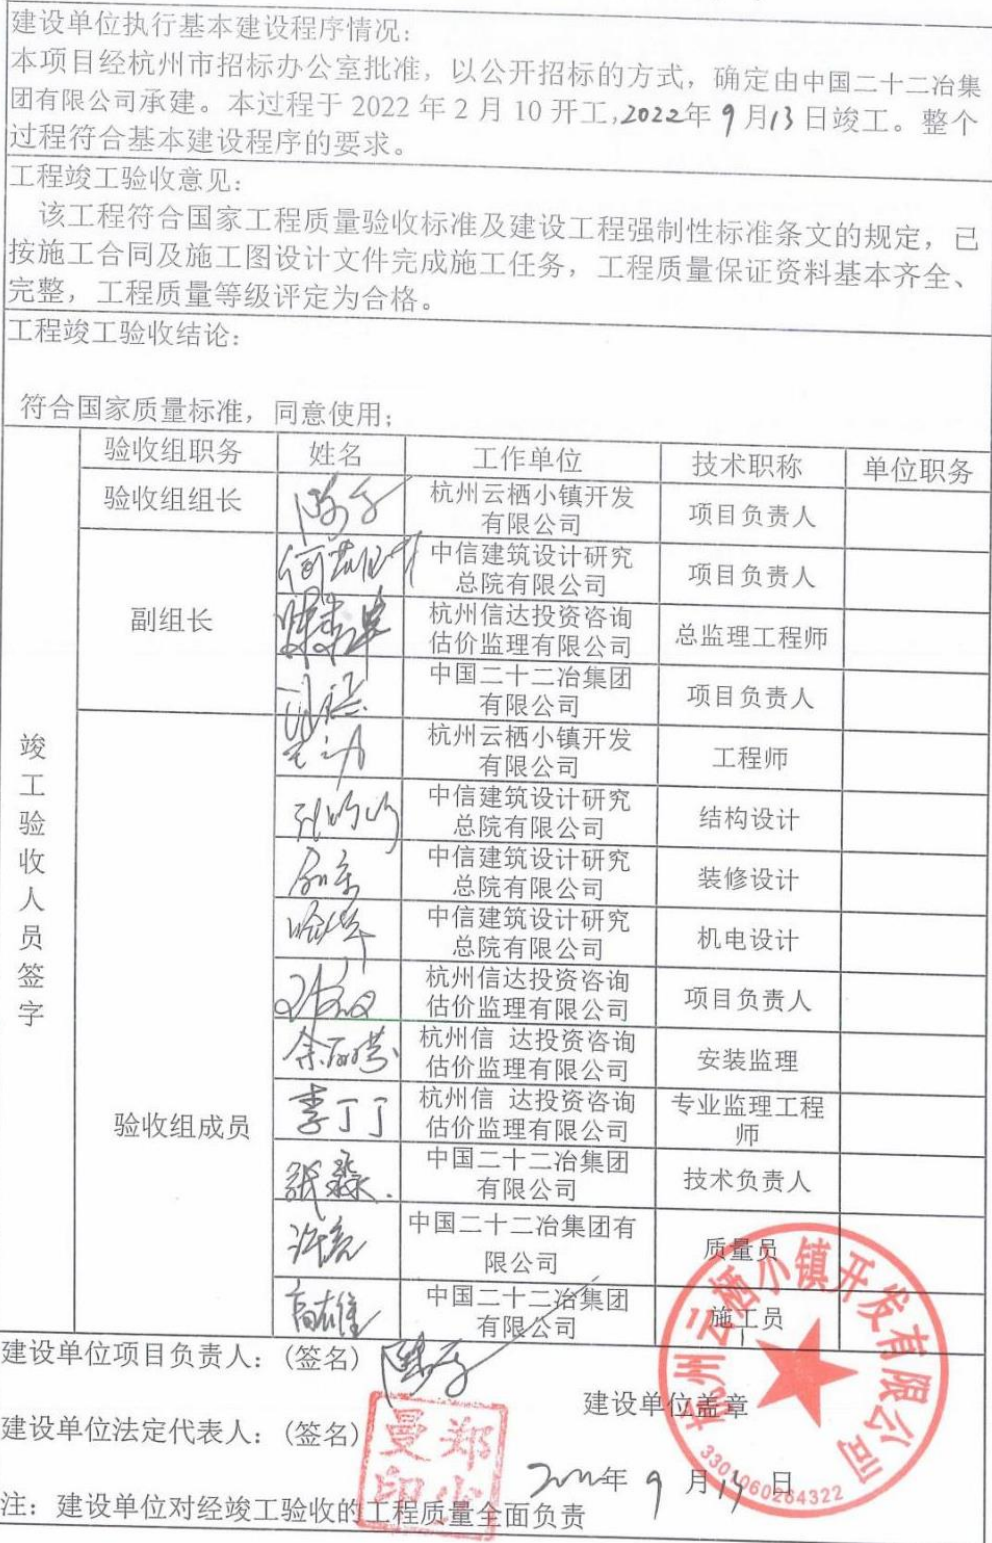 建设单位执行基本建设程序情况：
本项目经杭州市招标办公室批准，以公开招标的方式，确定由中国二十二冶集
团有限公司承建。本过程于 2022 年 2 月 10 开工,2022年 9月13日竣工。整个
过程符合基本建设程序的要求。
工程竣工验收意见：
该工程符合国家工程质量验收标准及建设工程强制性标准条文的规定，已
按施工合同及施工图设计文件完成施工任务，工程质量保证资料基本齐全、
完整，工程质量等级评定为合格。
工程竣工验收结论：
符合国家质量标准，同意使用；
竣工验收人员签字
验收组职务 姓名 工作单位 技术职称 单位职务
验收组组长 杭州云栖小镇开发
有限公司 项目负责人
副组长
中信建筑设计研究
总院有限公司 项目负责人
杭州信达投资咨询
估价监理有限公司 总监理工程师
中国二十二冶集团
有限公司 项目负责人
验收组成员
杭州云栖小镇开发
有限公司 工程师
中信建筑设计研究
总院有限公司 结构设计
中信建筑设计研究
总院有限公司 装修设计
中信建筑设计研究
总院有限公司 机电设计
杭州信达投资咨询
估价监理有限公司 项目负责人
杭州信 达投资咨询
估价监理有限公司 安装监理
李丁丁 杭州信 达投资咨询
估价监理有限公司 专业监理工程
师
张淼 中国二十二冶集团
有限公司 技术负责人
中国二十二冶集团有
限公司 质量员
高雄 中国二十二冶集团
有限公司 施工员
建设单位项目负责人：(签名)
建设单位盖章
杭州云栖小镇开发有限公司
建设单位法定代表人：(签名)
郑小曼印
年 9 月 日
注：建设单位对经竣工验收的工程质量全面负责